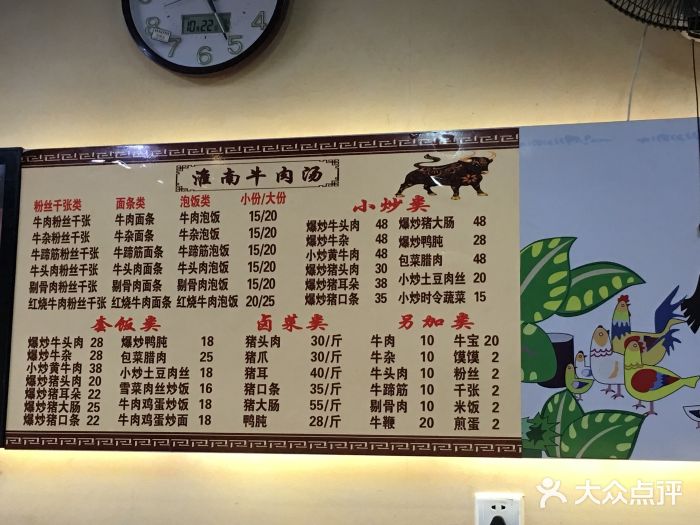 淮南牛肉汤
粉丝千张类 面条类 泡饭类 小份/大份
牛肉粉丝千张 牛肉面条 牛肉泡饭 15/20
牛杂粉丝千张 牛杂面条 牛杂泡饭 15/20
牛蹄筋粉丝千张 牛蹄筋面条 牛蹄筋泡饭 15/20
牛头肉粉丝千张 牛头肉面条 牛头肉泡饭 15/20
剔骨肉粉丝千张 剔骨肉面条 剔骨肉泡饭 15/20
红烧牛肉粉丝千张 红烧牛肉面条 红烧牛肉泡饭 20/25
小炒类
爆炒牛头肉 48 爆炒猪大肠 48
爆炒牛杂 48 爆炒鸭肫 28
小炒黄牛肉 48 包菜腊肉 48
爆炒猪头肉 30 小炒土豆肉丝 20
爆炒猪耳朵 38 小炒时令蔬菜 15
爆炒猪口条 35
套饭类
爆炒牛头肉 28 爆炒鸭肫 18
爆炒牛杂 28 包菜腊肉 25
小炒黄牛肉 38 小炒土豆肉丝 18
爆炒猪头肉 20 雪菜肉丝炒饭 16
爆炒猪耳朵 22 牛肉鸡蛋炒饭 18
爆炒猪大肠 25 牛肉鸡蛋炒面 18
爆炒猪口条 22
卤菜类
猪头肉 30/斤
猪爪 30/斤
猪耳 40/斤
猪口条 35/斤
猪大肠 55/斤
鸭肫 28/斤
另加类
牛肉 10 牛宝 20
牛杂 10 馍馍 2
牛头肉 10 粉丝 2
牛蹄筋 10 千张 2
剔骨肉 10 米饭 2
牛鞭 20 煎蛋 2
大众点评